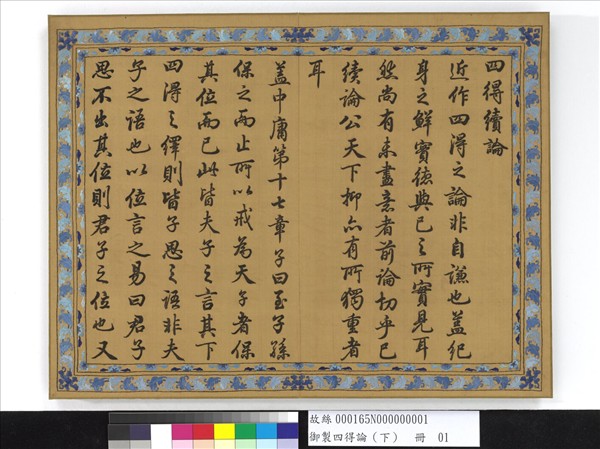 四得續論
近作四得之論非自謙也蓋紀
身之鮮實德與己之所實見耳
然尚有未盡意者前論切乎己
續論公天下抑亦有所獨重者
耳
蓋中庸第十七章子曰至子孫
保之而止所以戒為天子者保
其位而已此皆夫子之言其下
四得之繹則皆子思之語非夫
子之語也以位言之易曰君子
思不出其位則君子之位也又
故絲000165N000000001
御製四得論(下) 冊 01